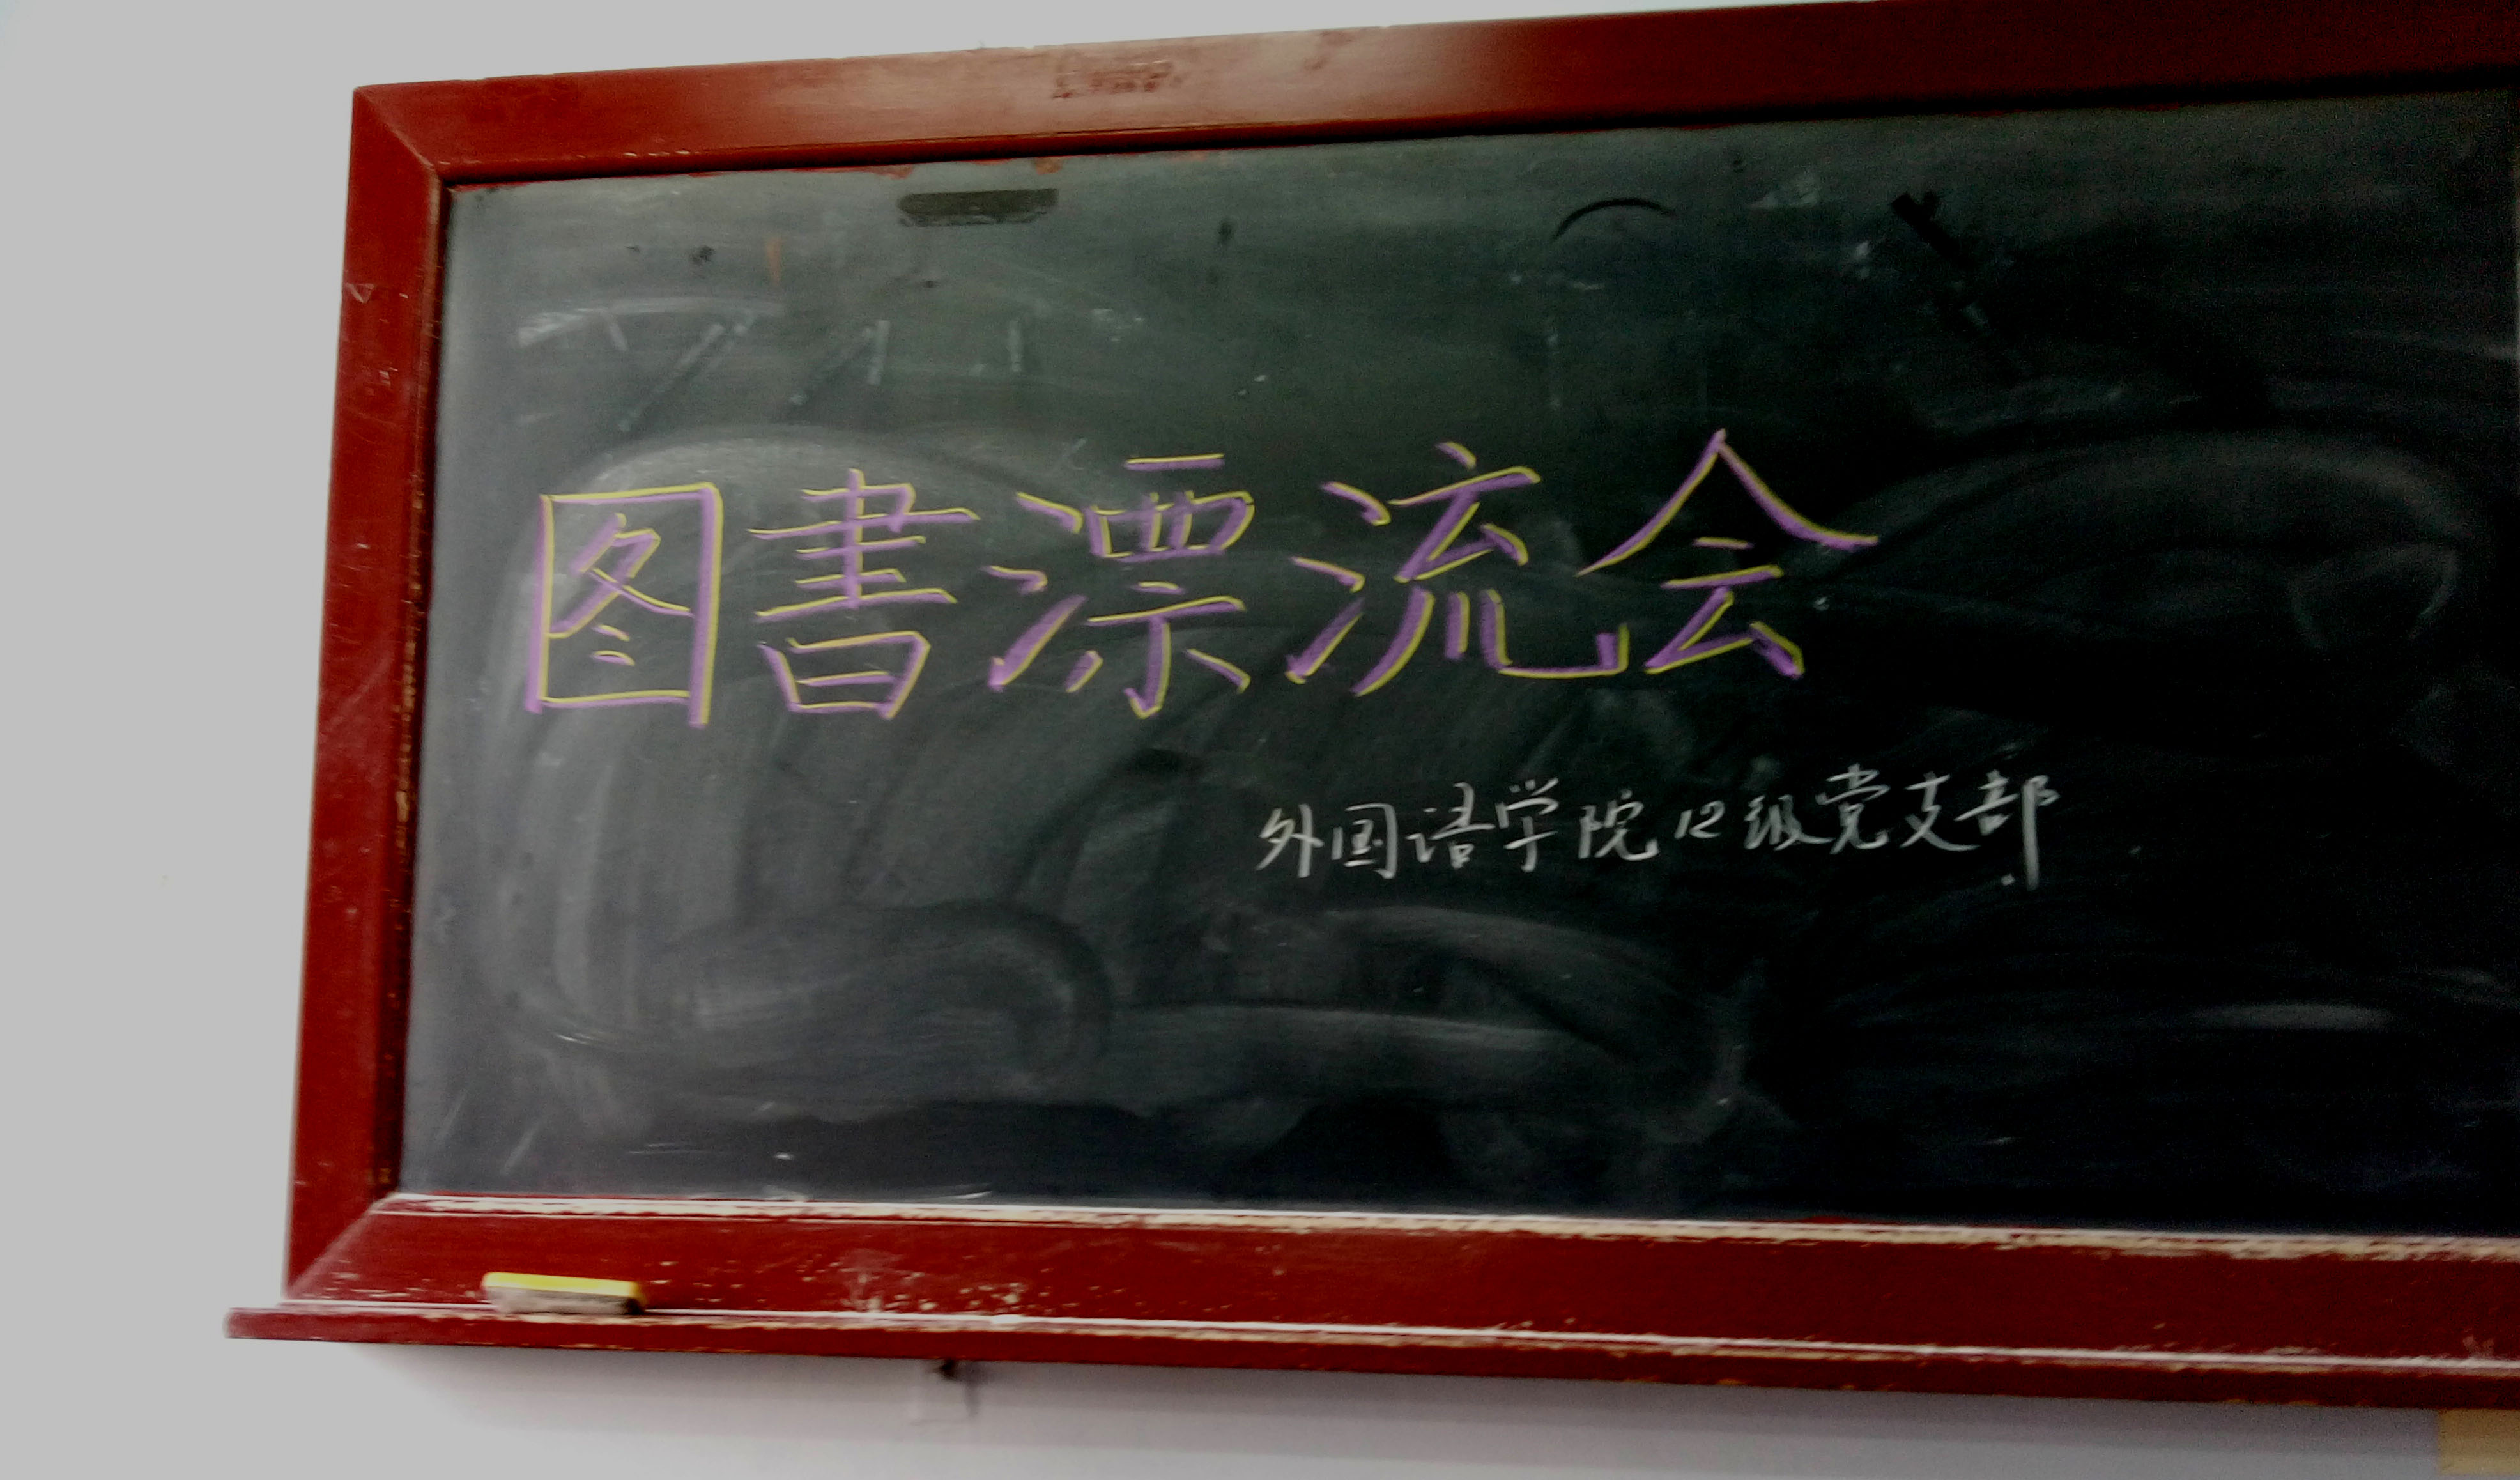 图書漂流会
外国语学院12级党支部